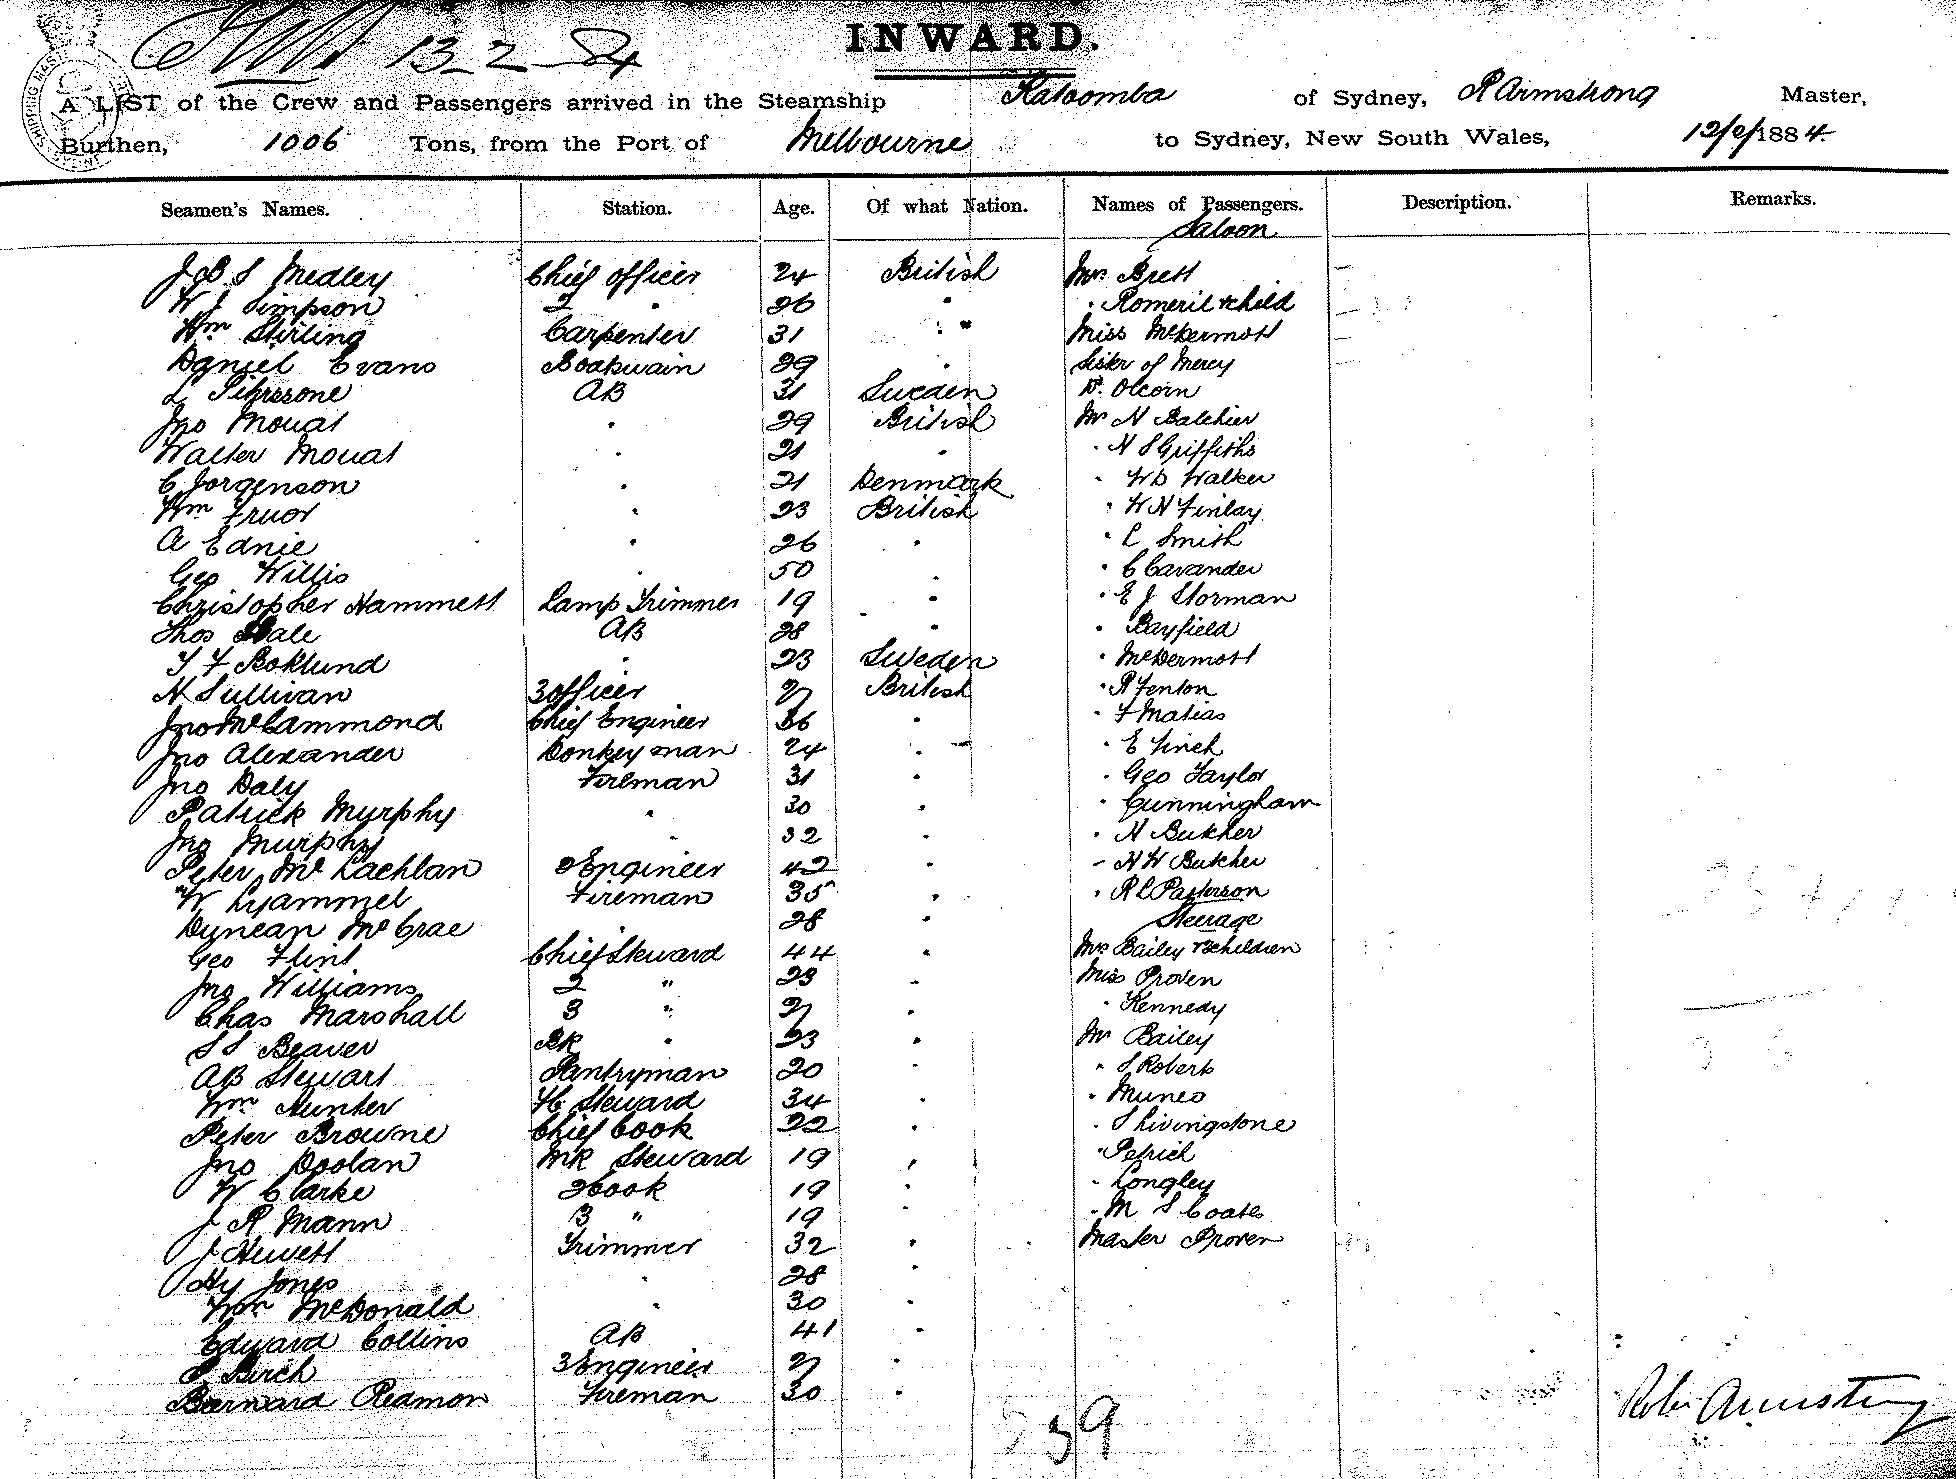 13_2_84
INWARD.
A LIST of the Crew and Passengers arrived in the Steamship Katoomba of Sydney, R Armstrong Master,
Burthen, 1006 Tons, from the Port of Melbourne to Sydney, New South Wales, 12/2/1884
Seamen's Names. Station. Age. Of what Nation. Names of Passengers. Description. Remarks.
Saloon
J B S Medley Chief officer 24 British Mrs Brett
W J Simpson 2 " 26 " " Romeril & child
Wm Stirling Carpenter 31 " Miss McDermott
Daniel Evans Boatswain 29 " Sister of Mercy
L AB 31 Sweden Dr. Olcorn
Jno Mouat " 29 British Mr H Balchier
Walter Mouat " 21 " " H S Griffiths
C Jorgenson " 21 Denmark " W D Walker
Wm Fruor " 23 British " W H Finlay
A Ednie " 26 " " L Smith
Geo Willis " 50 " " C Cavander
Christopher Hammett Lamp Trimmer 19 " " E J Storman
Thos Dale AB 28 " " Bayfield
T F Boklund " 23 Sweden " McDermott
H Sullivan 3 officer 27 British " R Fenton
Jno McCammond Chief Engineer 36 " " F Matias
Jno Alexander Donkey man 24 " " E Finch
Jno Daly Fireman 31 " " Geo Taylor
Patrick Murphy " 30 " " Cunningham
Jno Murphy " 32 " " H Butcher
Peter McLachlan 2 Engineer 42 " " H W Butcher
W Lyammel Fireman 35 " " R L Patterson
Duncan McCrae " 28 " Steerage
Geo Flint Chief Steward 44 " Mrs Bailey & children
Jno Williams 2 " 23 " Miss Proven
Chas Marshall 3 " 27 " " Kennedy
S S Beaver BK " 23 " Mr Bailey
AB Stewart Pantryman 20 " " S Roberts
Wm Hunter FC Steward 34 " " Munro
Peter Browne Chief Cook 22 " " S Livingstone
Jno Doolan MR Steward 19 " " Petrich
W Clarke 2 Cook 19 " " Longley
J R Mann 3 " 19 " " M S Coates
J Hewett Trimmer 32 " Master Proven
Hy Jones " 28 "
Wm McDonald " 30 "
Edward Collins AB 41 "
P Birch 3 Engineer 27 "
Barnard Redmon Fireman 30 "
39
Robt Armstrong